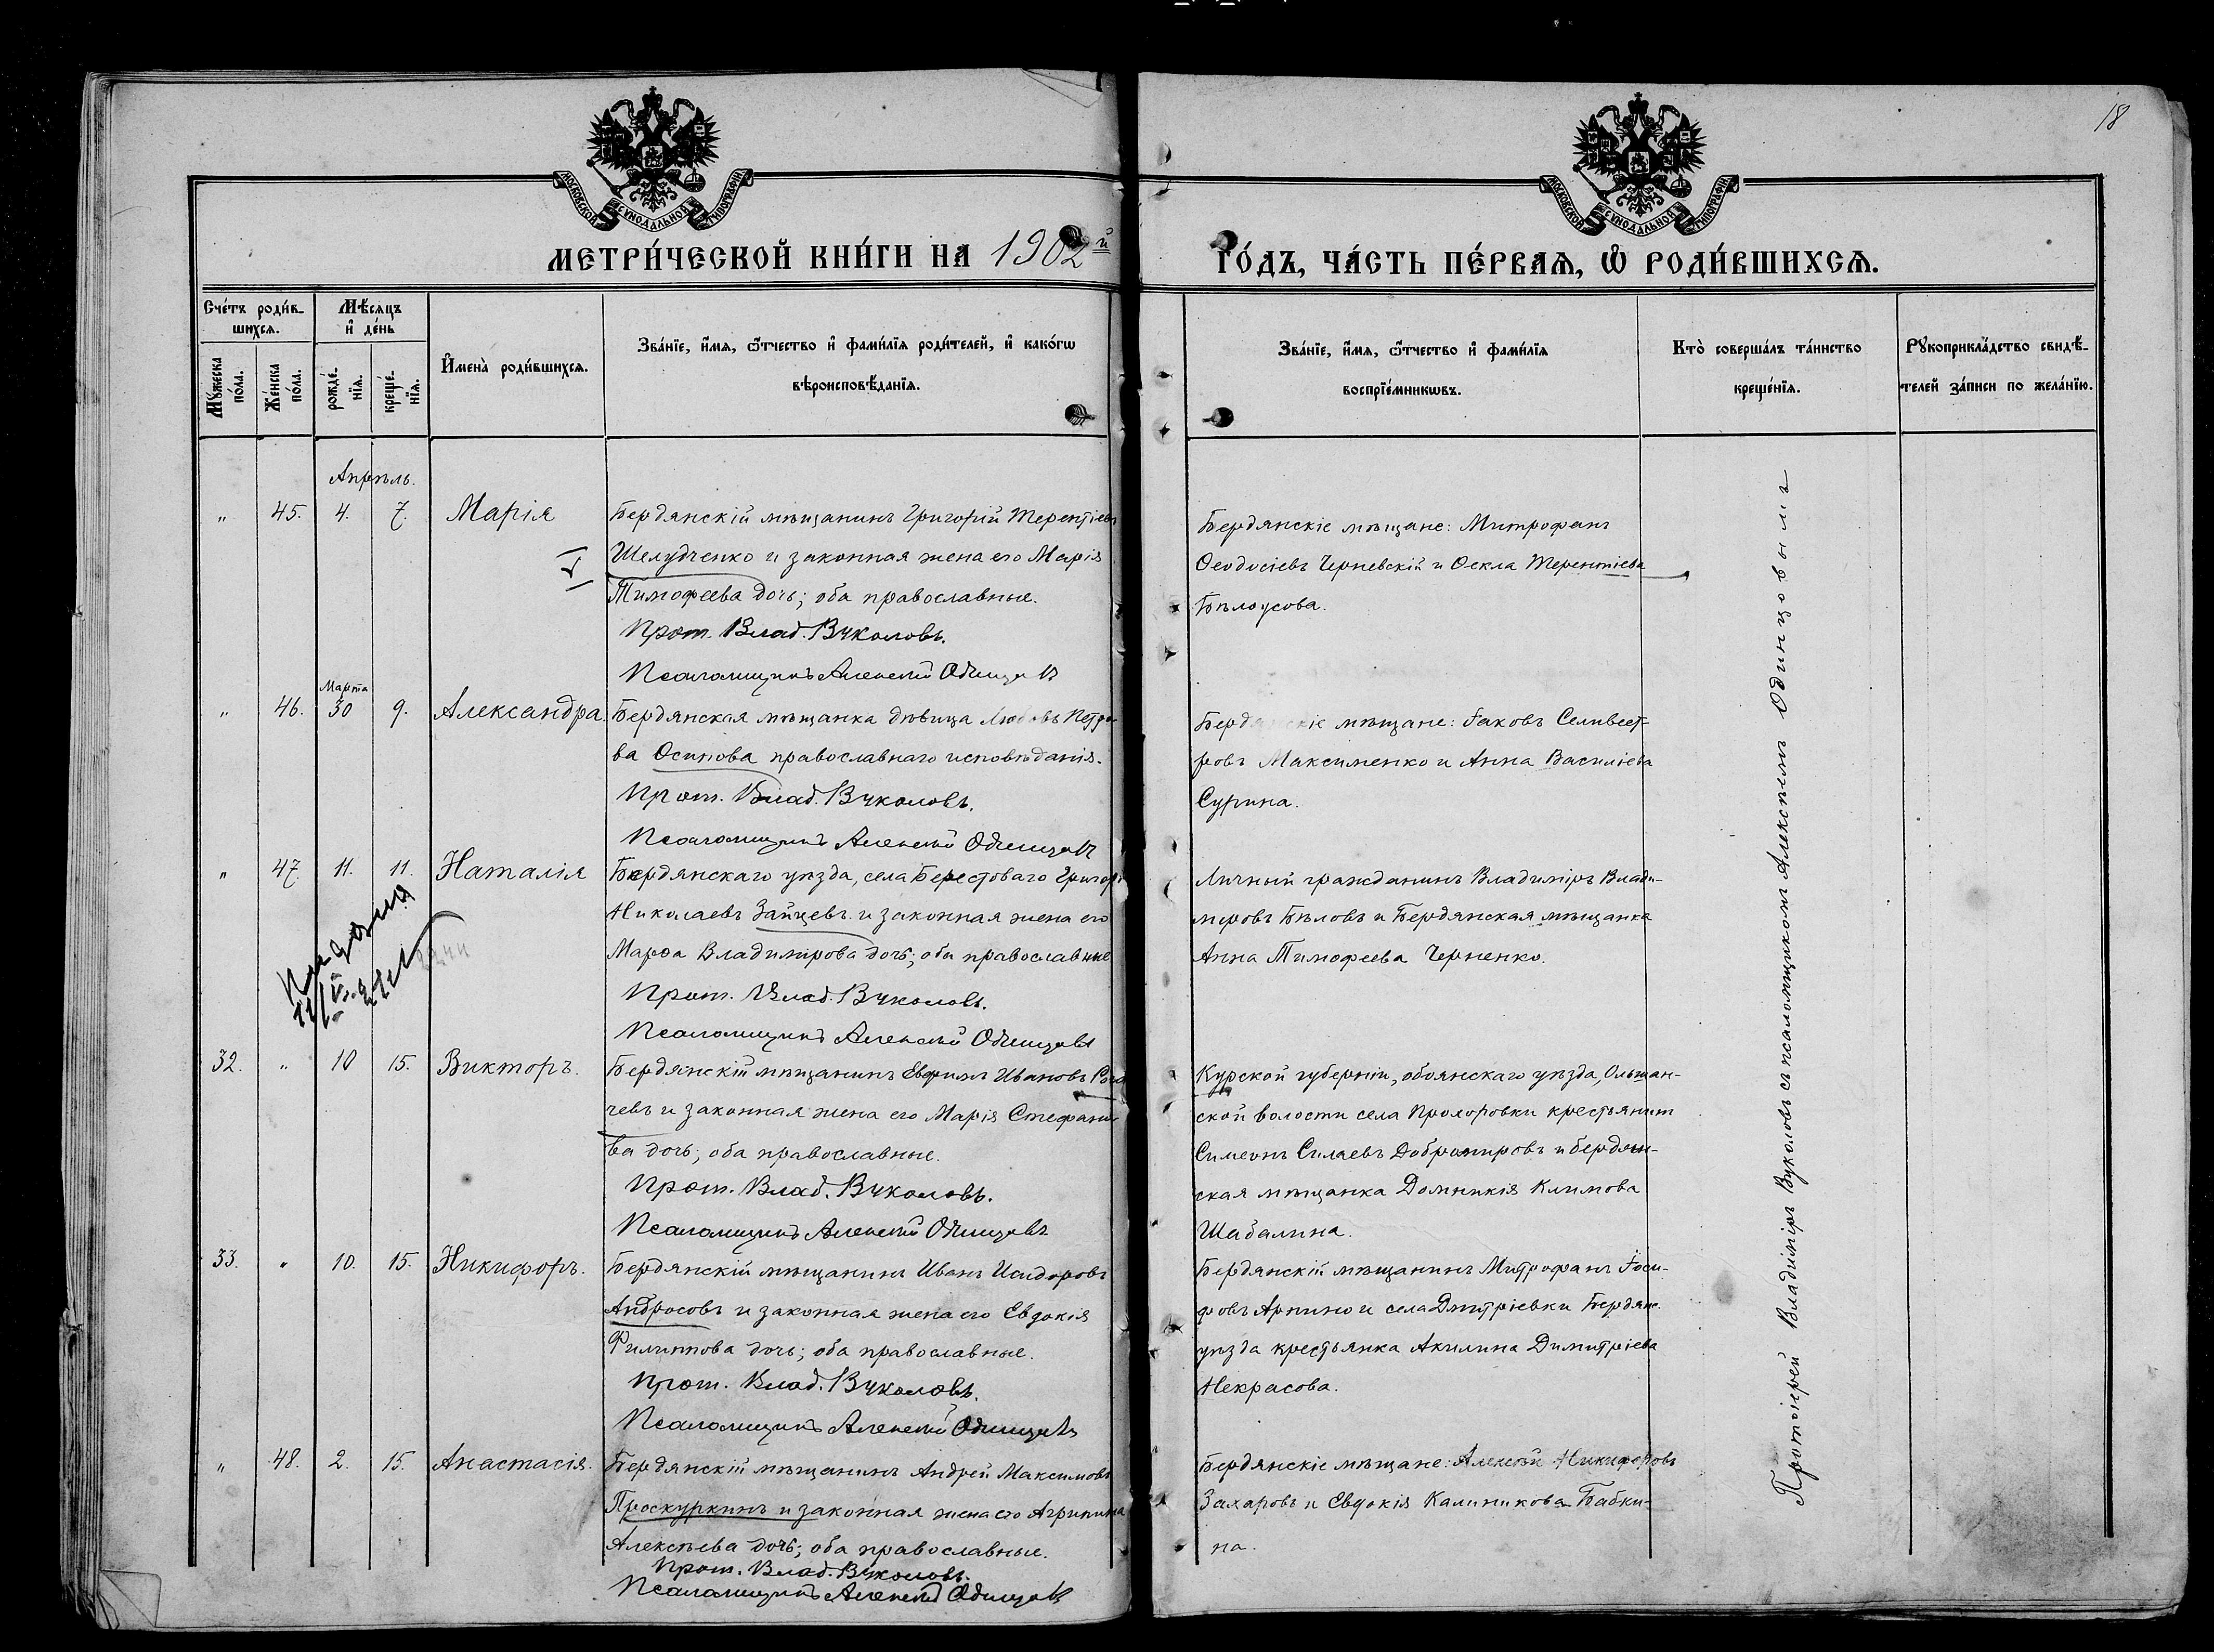 18
МОСКОВСКОЙ СѴНОДАЛЬНОЙ ТИПОГРАФІИ
МОСКОВСКОЙ СѴНОДАЛЬНОЙ ТИПОГРАФІИ
МЕТРИ́ЧЕСКОЙ КНИ́ГИ НА 1902й
ГО́ДЪ, ЧА́СТЬ ПЕ́РВАѦ, Ѽ РОДИ́ВШИХСѦ.
Сче́тъ роди́в-
шихсѧ.
Мꙋжеска
по́ла.
Же́нска
по́ла.
Мѣ́сяцъ
и҆ де́нь
рожде́-
нїѧ.
креще́-
нїѧ.
И҆мена̀ роди́вшихсѧ.
Зва́нїе, и҆́мѧ, ѻ҆́тчество и҆ фами́лїѧ роди́телей, и҆ како́гѡ
вѣроисповѣ́данїѧ.
Зва́нїе, и҆́мѧ, ѻ҆́тчество и҆ фами́лїѧ
воспрїе́мникѡвъ.
Кто̀ соверша́лъ та́инство
креще́нїѧ.
Рꙋкоприкла́дство свидѣ́-
телей за́писи по жела́нїю.
Апрѣль.
" 45. 4. 7. Марія
Бердянскій мѣщанинъ Григорій Терентіевъ
Шелудченко и законная жена его Марія
Тимофеева дочь; оба православные.
Прот. Влад. Вуколовъ.
Псаломщикъ Алексѣй Одинцовъ
Бердянскіе мѣщане: Митрофанъ
Ѳеодосіевъ Черневскій и Ѳекла Терентіева
Бѣлоусова.
Марта
" 46. 30 9. Александра.
Бердянская мѣщанка дѣвица Любовь Петро-
ва Осипова православнаго исповѣданія.
Прот. Влад. Вуколовъ.
Псаломщикъ Алексѣй Одинцовъ
Бердянскіе мѣщане: Іаковъ Селивест-
ровъ Максименко и Анна Василіева
Сурина.
" 47 11. 11. Наталія
Бердянскаго уѣзда, села Берестоваго Григорій
Николаевъ Зайцевъ и законная жена его
Марѳа Владимірова дочь; оба православные
Прот. Влад. Вуколовъ.
Псаломщикъ Алексѣй Одинцовъ
Личный гражданинъ Владиміръ Влади-
міровъ Бѣловъ и Бердянская мѣщанка
Анна Тимофеева Черненко.
32. " 10 15. Викторъ.
Бердянскій мѣщанинъ Евфимъ Ивановъ
чевъ и законная жена его Марія Стефано-
ва дочь; оба православные.
Прот. Влад. Вуколовъ.
Псаломщикъ Алексѣй Одинцовъ
Курской губерніи, обоянскаго уѣзда, Ольшан-
ской волости села Прохоровки крестьянинъ
Симеонъ Силаевъ Доброміровъ и бердян-
ская мѣщанка Домникія Климова
Шабалина.
33. " 10. 15. Никифоръ.
Бердянскій мѣщанинъ Иванъ Исидоровъ
Андросовъ и законная жена его Евдокія
Филиппова дочь; оба православные.
Прот. Влад. Вуколовъ.
Псаломщикъ Алексѣй Одинцовъ
Бердянскій мѣщанинъ Митрофанъ Іоси-
фовъ и села Дмитріевки Бердянс.
уѣзда крестьянка Акилина Димитріева
Некрасова.
" 48. 2. 15. Анастасія.
Бердянскій мѣщанинъ Андрей Максимовъ
Проскуркинъ и законная жена его Агрипина
Алексѣева дочь; оба православные.
Прот. Влад. Вуколовъ.
Псаломщикъ Алексѣй Одинцовъ
Бердянскіе мѣщане: Алексѣй Никифоровъ
Захаровъ и Евдокія Калиникова Бабки-
на.
Протоіерей Владиміръ Вуколовъ съ псаломщикомъ Алексѣемъ Одинцовымъ